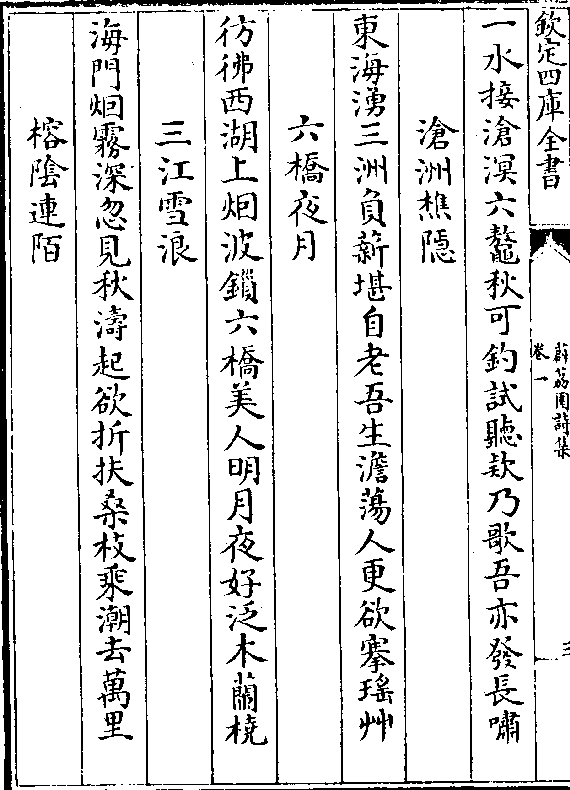 欽定四庫全書
薜荔園詩集
卷一
三
一水接滄溟六鼇秋可釣試聽欵乃歌吾亦發長嘯
滄洲樵隱
東海湧三洲負薪堪自老吾生澹蕩人更欲搴瑤艸
六橋夜月
彷彿西湖上烟波鎖六橋美人明月夜好泛木蘭橈
三江雪浪
海門烟霧深忽見秋濤起欲折扶桑枝乘潮去萬里
榕陰連陌